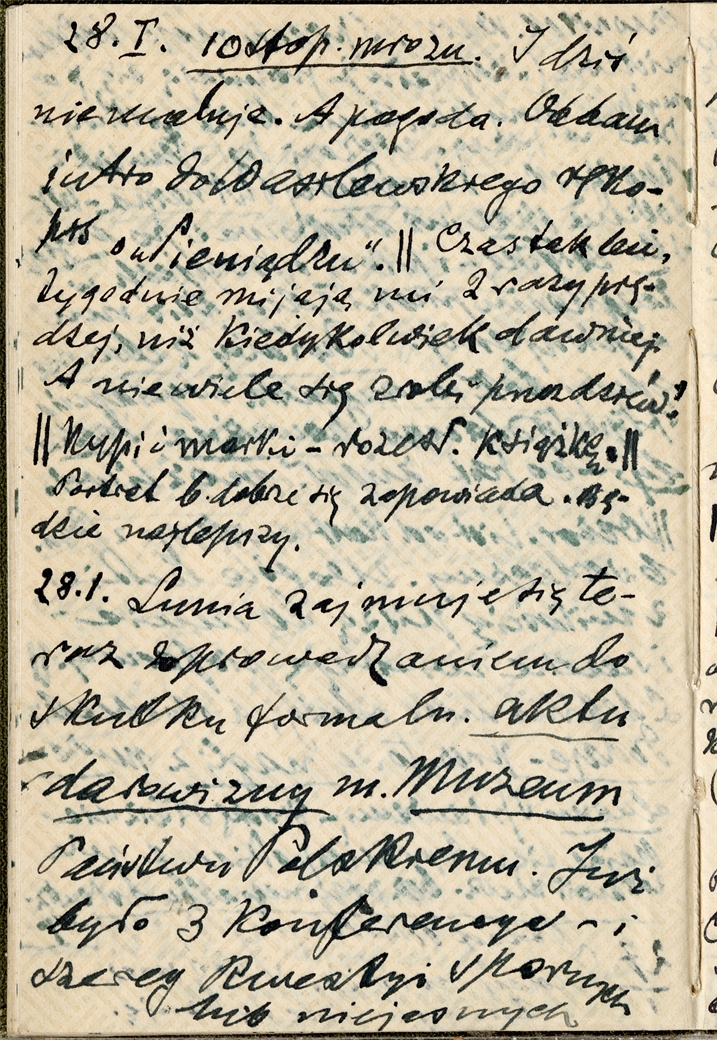 28.I. 10 stop. mrozu. I dziś
nie maluję. A pogoda. Oddam
jutro do Wasilewskiego ręko-
pis o „Pieniądzu". || Czas tak leci,
tygodnie mijają mi 2 razy prę-
dzej, niż kiedykolwiek dawniej.
A niewiele się zrobi przez dzień!
|| Kupić marki – rozesł. książkę. ||
Portret b. dobrze się zapowiada. Bę-
dzie najlepszy.
28.1. Lunia zajmuje się te-
raz doprowadzaniem do
skutku formaln. aktu
darowizny m. Muzeum
Państwu Polskiemu. Już
było 3 konferencye – i
szereg kwestyi spornych
lub niejasnych